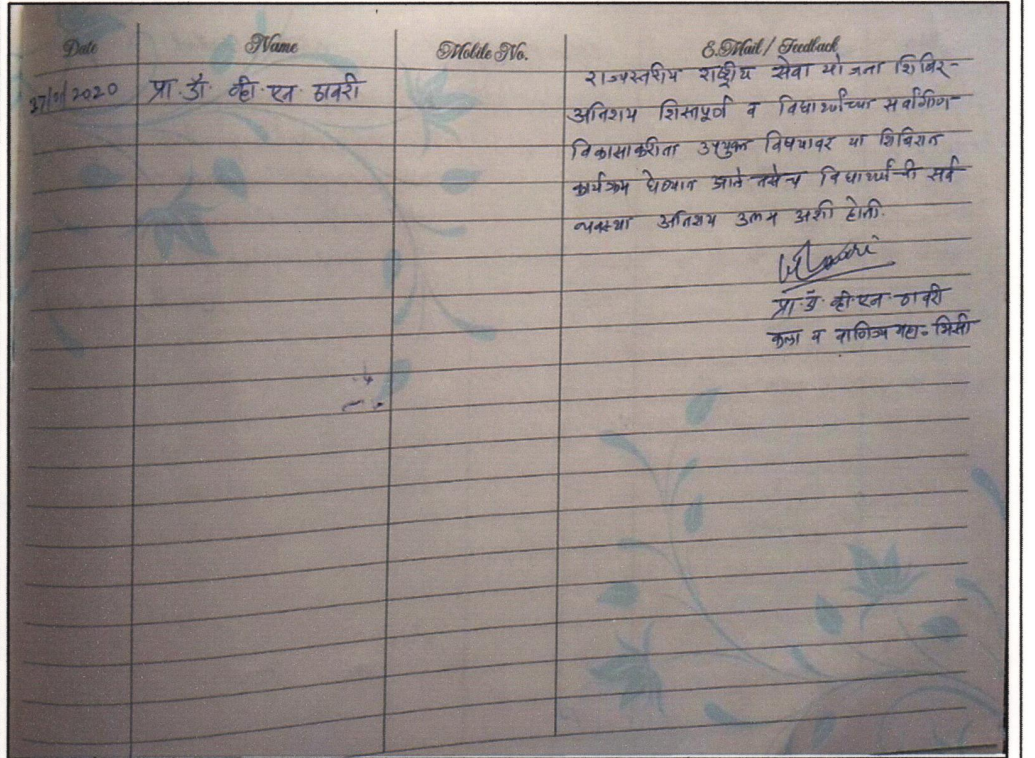 Date Name Mobile No. E.Mail / Feedback
2020 प्रा. डॉ. व्ही. एन. ठावरी
राज्यस्तरीय राष्ट्रीय सेवा योजना शिबिर-
अतिशय शिस्तपूर्ण व विद्यार्थ्यांच्या सर्वांगीण
विकासाकरीता उपयुक्त विषयावर या शिबिरात
कार्यक्रम घेण्यात आले तसेच विद्यार्थ्यांची सर्व
व्यवस्था अतिशय उत्तम अशी होती.
प्रा. डॉ. व्ही. एन. ठावरी
कला व वाणिज्य महा. भिसी